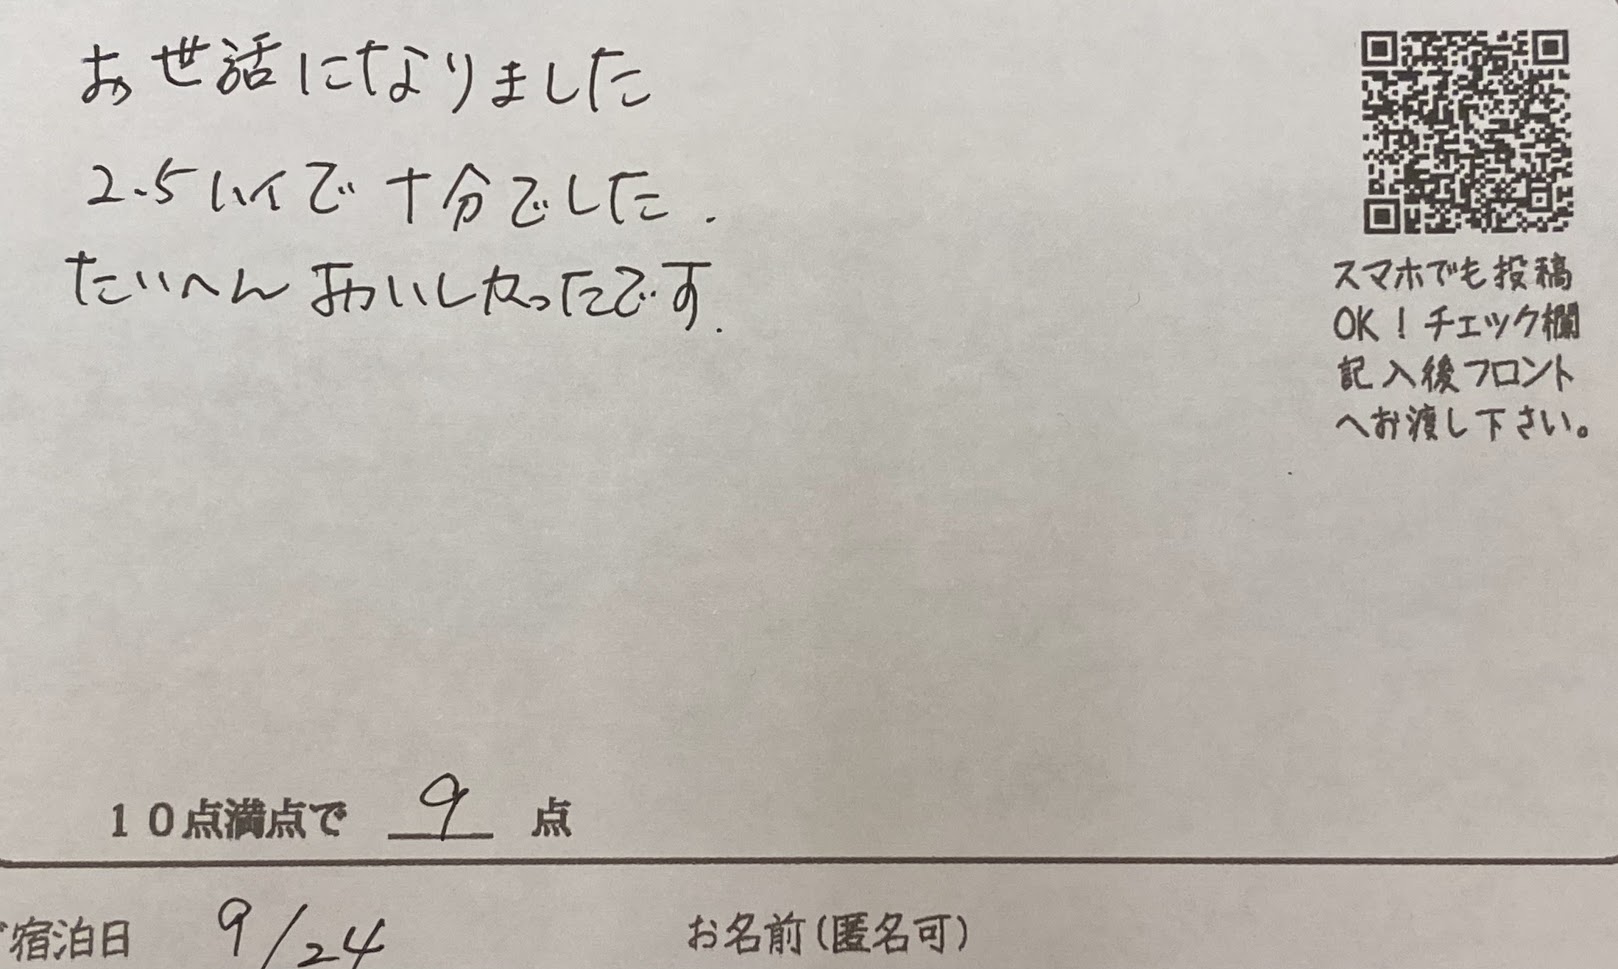 お世話になりました
2.5ハイで十分でした.
たいへんおいしかったです.
スマホでも投稿
OK！チェック欄
記入後フロント
へお渡し下さい。
10点満点で 9 点
宿泊日 9/24 お名前(匿名可)